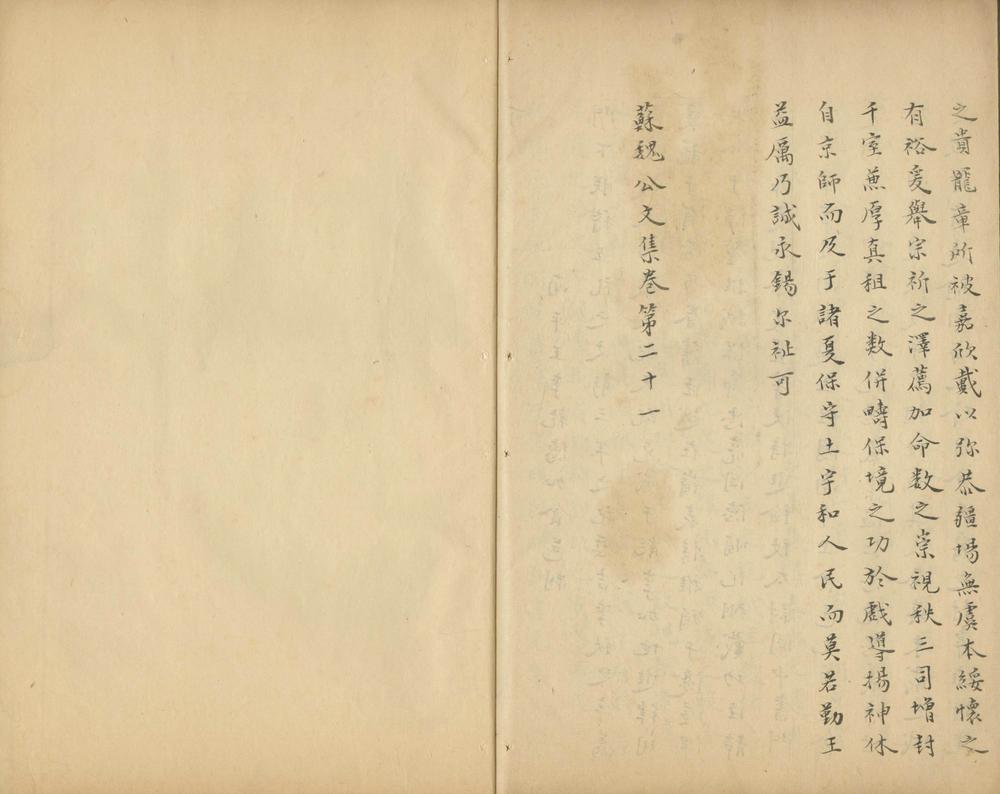 之貴龍章所被嘉欣戴以弥恭疆埸無虞本綏懷之
有裕爰舉宗祈之澤薦加命數之崇視秩三司增封
千室蒹厚真租之数併疇保境之功於戲導揚神休
自京師而及于諸夏保守土宇和人民而莫若勤王
益厲乃誠永錫尔祉可
蘇魏公文集卷第二十一